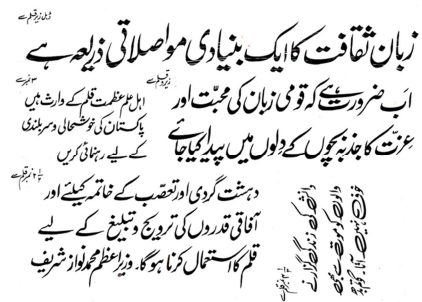 ڈبل زیر و قلم سے
زبان ثقافت کا ایک بنیادی مواصلاتی ذریعہ ہے
زیرو قلم سے
اب ضرورت ہے کہ قومی زبان کی محبت اور
عزت کا جذبہ بچوں کے دلوں میں پیدا کیا جائے
۳ نمبر سے
اہل علم عظمت قلم کے وارث ہیں
پاکستان کی خوشحالی و سربلندی
کے لیے رہنمائی کریں
دہشت گردی اور تعصب کے خاتمہ کیلئے اور
آفاقی قدروں کی ترویج و تبلیغ کے لیے
قلم کا استعمال کرنا ہوگا۔ وزیر اعظم محمد نواز شریف
دانش کی زندگی گزارنے
والوں کو موت سے بھی
خوف نہیں آتا۔